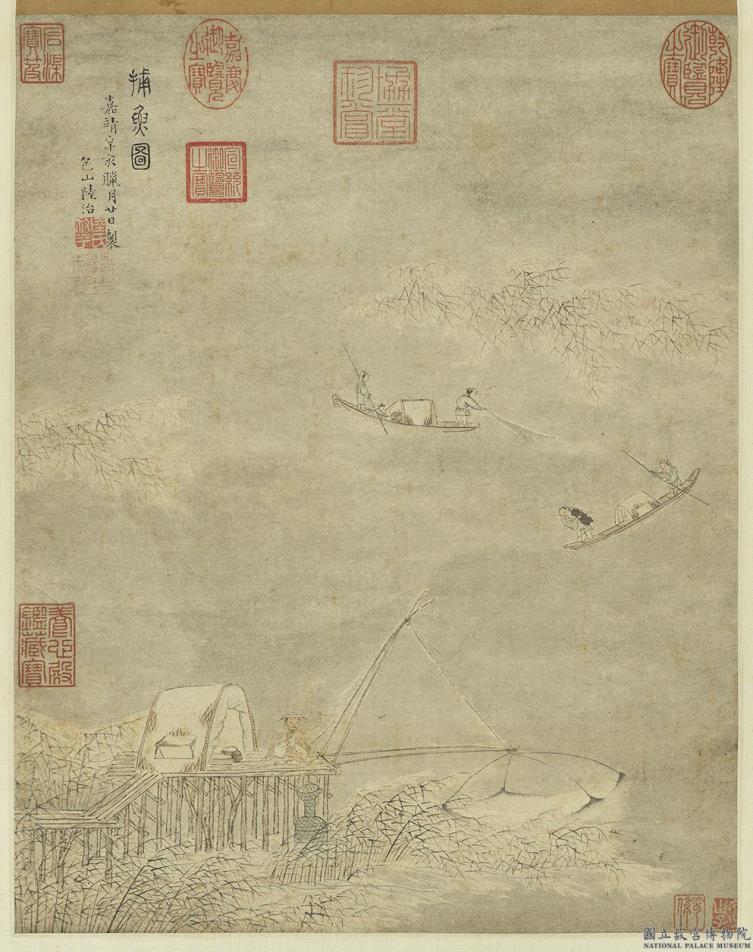 捕魚圖
嘉靖辛亥臘月廿日製
包山陸治
乾隆御覽之寶
嘉慶御覽之寶
宣統御覽之寶
石渠寶笈
養心殿鑑藏寶
國立故宮博物院
NATIONAL PALACE MUSEUM